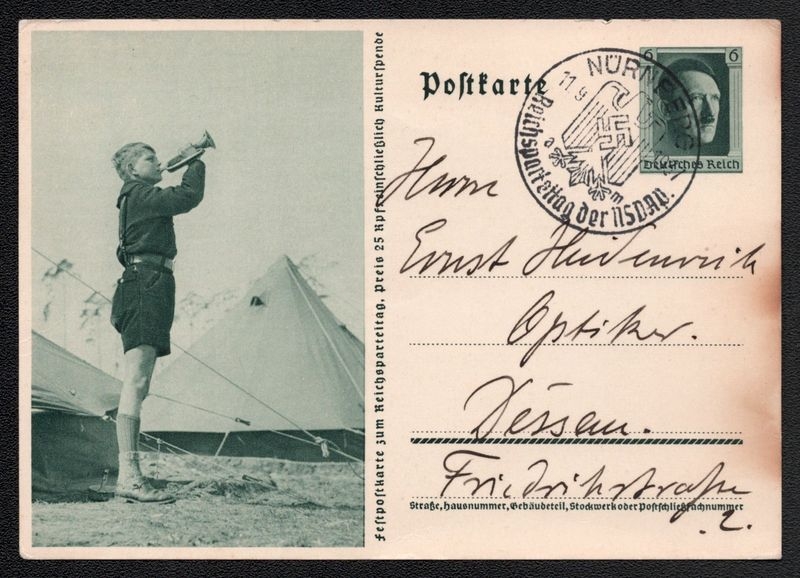 Festpostkarte zum Reichsparteitag. Preis 25 Rpf. einschließlich Kulturspende
Postkarte
NÜRNBERG
11.9
Reichsparteitag der NSDAP.
a
m
6 6
Deutsches Reich
Herrn
Ernst Heidenreich
Optiker.
Dessau.
Friedrichstraße
2.
Straße, Hausnummer, Gebäudeteil, Stockwerk oder Postschließfachnummer